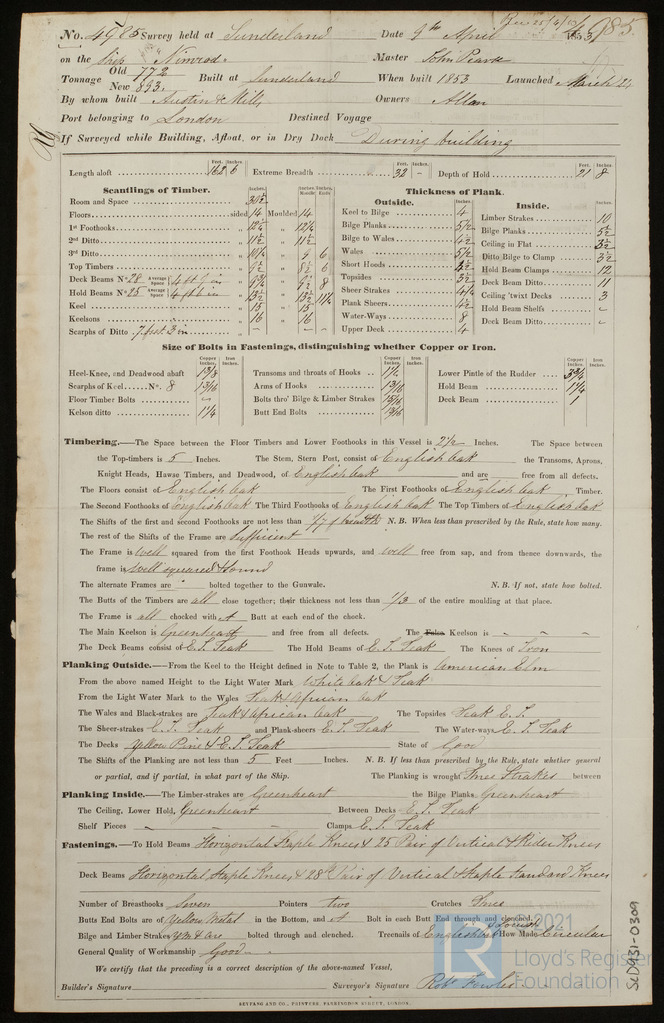 No. 4985 Survey held at Sunderland Date 9th April 1853
on the Ship "Nimrod" Master John Pearse
Tonnage Old 772 New 893 Built at Sunderland When built 1853 Launched March 24
By whom built Austin & Mills Owners Allan
Port belonging to London Destined Voyage
If Surveyed while Building, Afloat, or in Dry Dock During building
Length aloft Feet. 162 Inches. 6 Extreme Breadth Feet. 32 Inches. – Depth of Hold Feet. 21 Inches. 8
Scantlings of Timber.
Room and Space
Floors sided 14 Moulded 14
1st Foothooks 12¼ " 12¼
2nd Ditto 11½ " 11½
3rd Ditto 10¼ " 9 6
Top Timbers 9½ " 8½ 6
Deck Beams No. 28 Average Space 4 feet in
Hold Beams No. 25 Average Space 4 feet 6 in 13½ " 13½ 11½
Keel 15 " 13
Keelsons 16 " 16
Scarphs of Ditto 7 feet 3 in – – –
Thickness of Plank.
Outside.
Keel to Bilge 4
Bilge Planks 5½
Bilge to Wales 4½
Wales 5½
Short Hoods 4½
Topsides 3½
Sheer Strakes 4¼
Plank Sheers 4½
Water-Ways 8
Upper Deck 4
Inside.
Limber Strakes 10
Bilge Planks 5½
Ceiling in Flat 3½
Ditto Bilge to Clamp 3½
Hold Beam Clamps 12
Deck Beam Ditto 11
Ceiling 'twixt Decks 3
Hold Beam Shelfs ~
Deck Beam Ditto ~
Size of Bolts in Fastenings, distinguishing whether Copper or Iron.
Copper Inches. Iron Inches.
Heel-Knee, and Deadwood abaft
Scarphs of Keel No. 8 13/16
Floor Timber Bolts ~
Kelson ditto 1¼
Transoms and throats of Hooks
Arms of Hooks 13/16
Bolts thro' Bilge & Limber Strakes 15/16
Butt End Bolts
Lower Pintle of the Rudder 3¾
Hold Beam 1¼
Deck Beam 1
Timbering.—The Space between the Floor Timbers and Lower Foothooks in this Vessel is 2½ Inches. The Space between
the Top-timbers is 5 Inches. The Stem, Stern Post, consist of English oak the Transoms, Aprons,
Knight Heads, Hawse Timbers, and Deadwood, of English oak and are free from all defects.
The Floors consist of English oak The First Foothooks of English oak Timber.
The Second Foothooks of English oak The Third Foothooks of English oak The Top Timbers of English oak
The Shifts of the first and second Foothooks are not less than 1/7 of breadth N.B. When less than prescribed by the Rule, state how many.
The rest of the Shifts of the Frame are sufficient
The Frame is well squared from the first Foothook Heads upwards, and well free from sap, and from thence downwards, the
frame is well squared & sound
The alternate Frames are " bolted together to the Gunwale. N.B. If not, state how bolted.
The Butts of the Timbers are all close together; their thickness not less than 1/3 of the entire moulding at that place.
The Frame is all chocked with A Butt at each end of the chock.
The Main Keelson is Greenheart and free from all defects. The False Keelson is – – –
The Deck Beams consist of E.I. Teak The Hold Beams of E.I. Teak The Knees of Iron
Planking Outside.—From the Keel to the Height defined in Note to Table 2, the Plank is American Elm
From the above named Height to the Light Water Mark White oak & Teak
From the Light Water Mark to the Wales Teak & African oak
The Wales and Black-strakes are Teak & African oak The Topsides Teak E.I.
The Sheer-strakes E.I. Teak and Plank-sheers E.I. Teak The Water-ways E.I. Teak
The Decks Yellow Pine & E.I. Teak State of Good
The Shifts of the Planking are not less than 5 Feet Inches. N.B. If less than prescribed by the Rule, state whether general
or partial, and if partial, in what part of the Ship. The Planking is wrought Three Strakes between
Planking Inside.—The Limber-strakes are Greenheart the Bilge Planks Greenheart
The Ceiling, Lower Hold, Greenheart Between Decks E.I. Teak
Shelf Pieces – – – – Clamps E.I. Teak
Fastenings.—To Hold Beams Horizontal Staple Knees & 25 Pair of Vertical & Rider Knees
Deck Beams Horizontal Staple Knees & 28 Pair of Vertical & Staple Standard Knees
Number of Breasthooks Seven Pointers two Crutches Three
Butts End Bolts are of Yellow Metal in the Bottom, and A Bolt in each Butt End through and clenched.
Bilge and Limber Strakes Y.M & are bolted through and clenched. Treenails of English oak How Made Circular
General Quality of Workmanship Good
We certify that the preceding is a correct description of the above-named Vessel.
Builder's Signature Surveyor's Signature Robt Fowler
SEYFANG AND CO., PRINTERS, FARRINGDON STREET, LONDON.
SLD931-0309
2021
LR
Lloyd's Register
Foundation